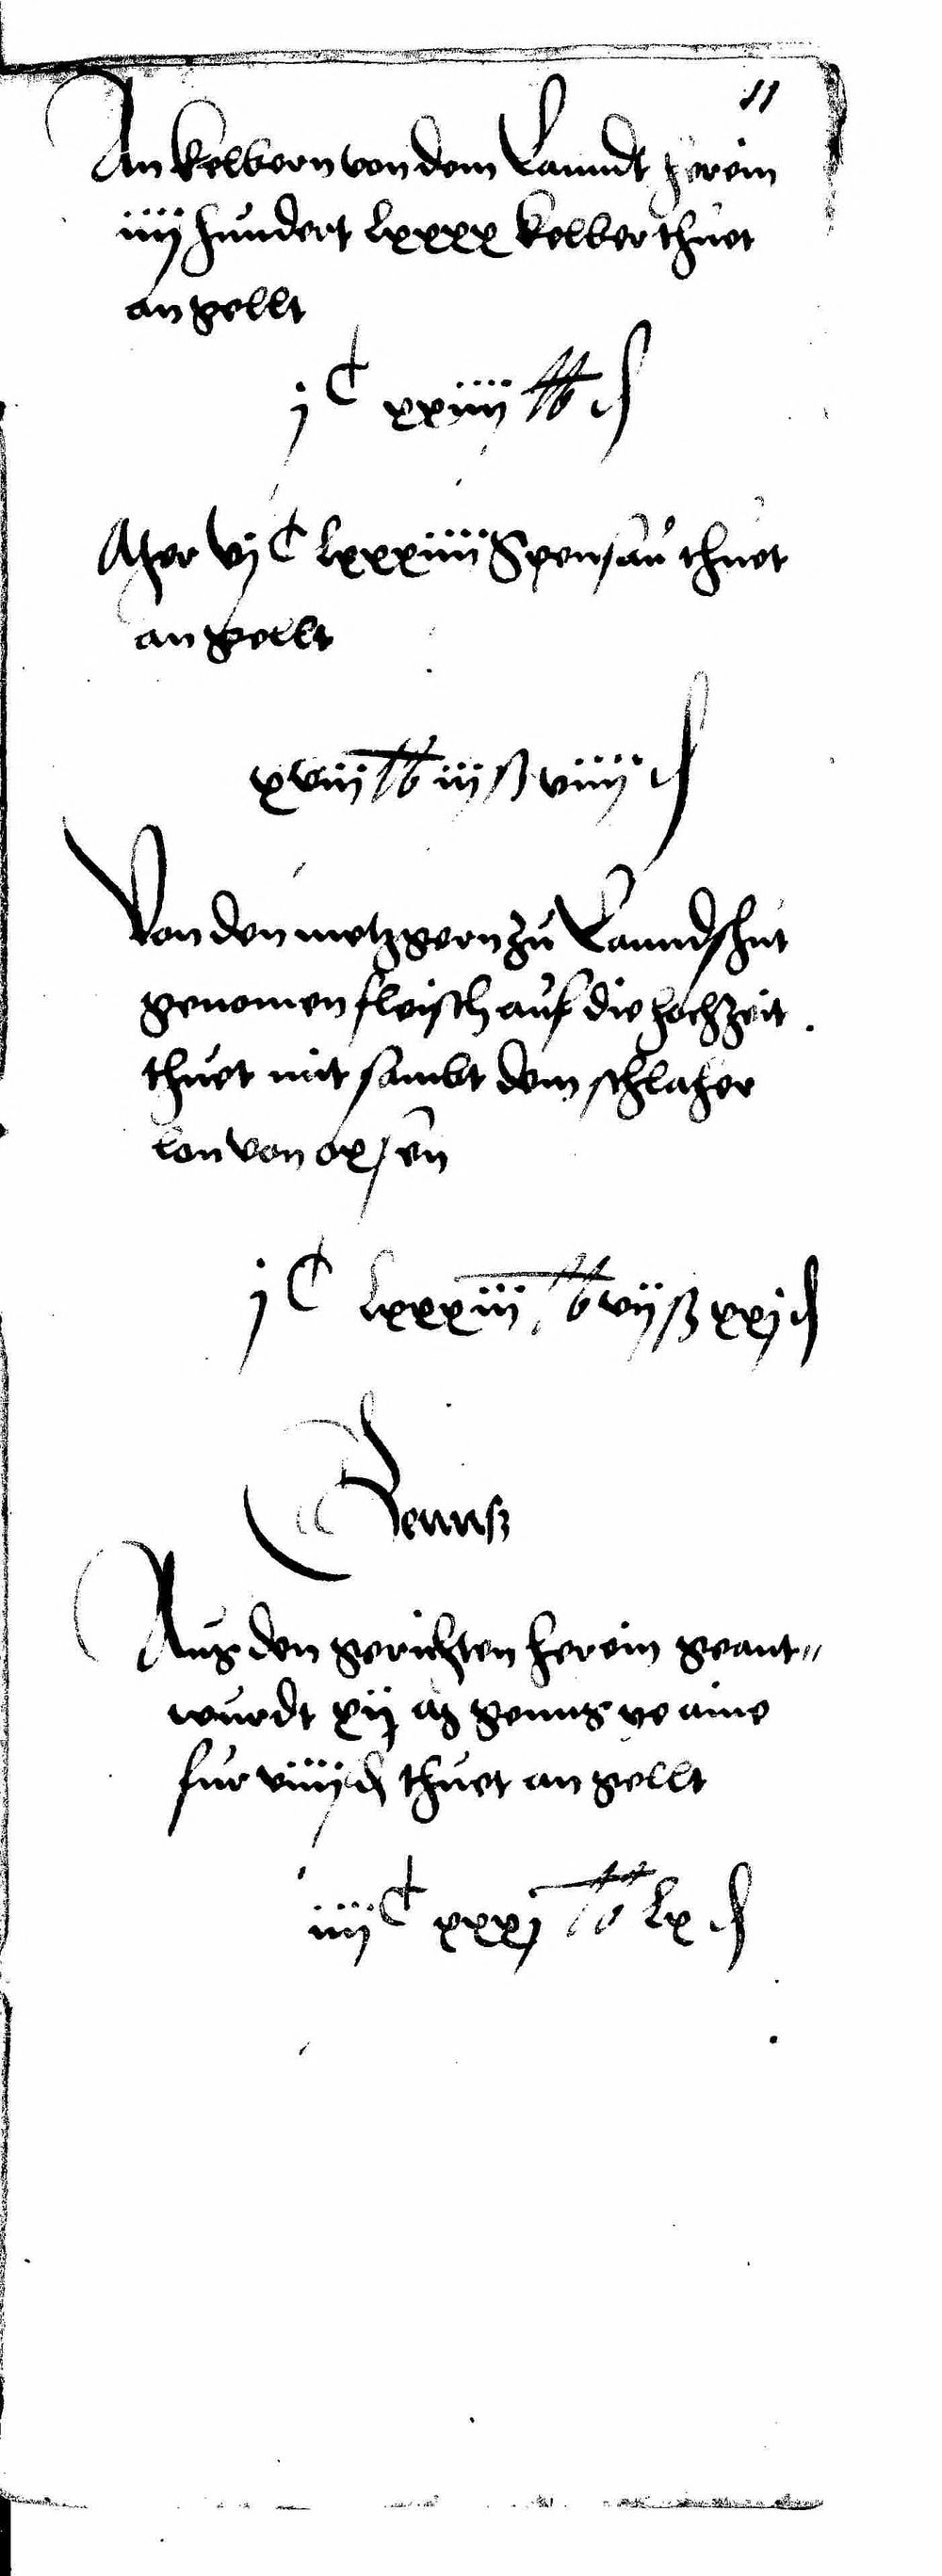 11
An kelbern von dem Lanndt herein
iiij hundert lxxxx kelber thuet
an gellt
j C xxiiij lb d
Mer vj C lxxxiiij Spensaw thuet
an gellt
xviij lb iij ß viiij d
Von den metzgern zu Lanndshut
genomen fleisch auf die hochzeit
thuet mit sambt dem schlaher
lon von oxsen
j C lxxxiij lb vij ß xxj d
Genns
Aus den gerichten herein geant„
wurdt xij genns ye aine
fur viiij d thuet an gellt
iiij C xxxj lb lx d